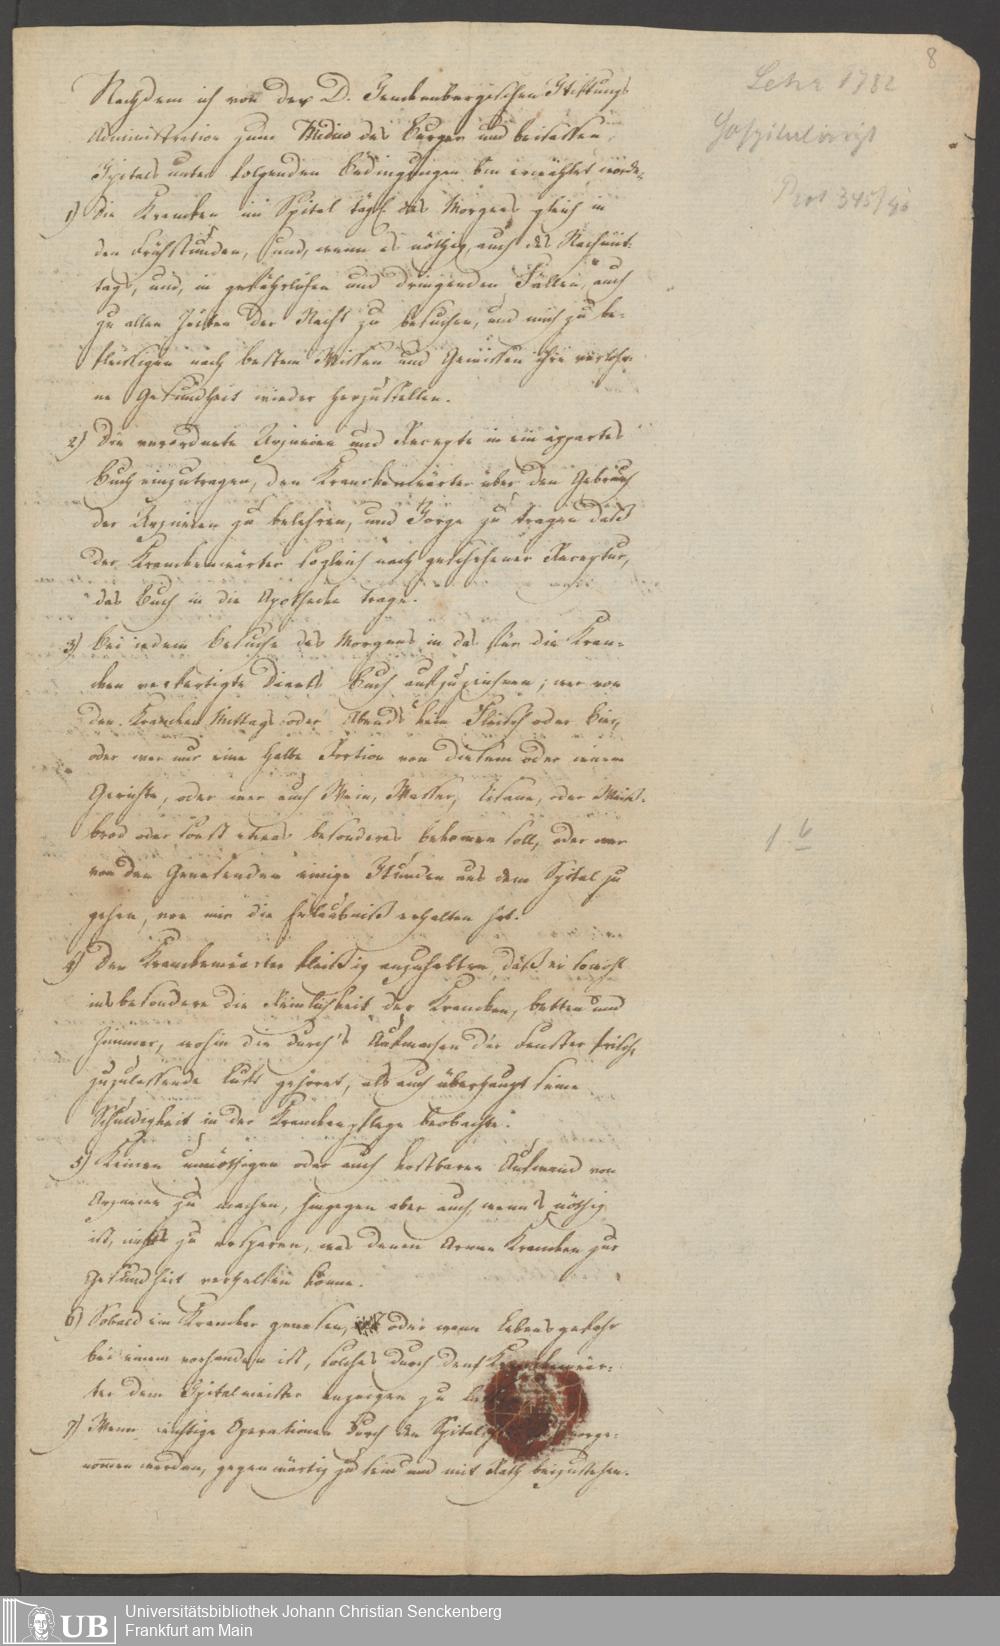 8
Lehr 1782
Hospitalarzt
Prot 345/46
Nachdem ich von der D. Senckenbergischen Stiftungs
Administration zum Medico des Burger und beisassen
Spitals unter folgenden Bedingungen bin erwählet worde:
1) Die Krancken im Spital tägl. des Morgens gleich in
den Frühstunden, und, wenn es nöthig, auch des Nachmit:
tags, und, in gefährlichen und dringenden Fällen, auch
zu allen Zeiten der Nacht zu besuchen, und mich zu be:
fleissigen nach bestem Wissen und Gewissen ihre verlohr
ne Gesundheit wieder herzustellen.
2) Die verordnete Arzneien und Recepte in ein appartes
Buch einzutragen, den Kranckenwärter über den Gebrauch
der Arzneien zu belehren, und Sorge zu tragen daß
der Kranckenwärter sogleich nach geschehener Receptur,
das Buch in die Apothecke trage.
3) Bei iedem Besuche des Morgens in das für die Kran:
cken verfertigte Diaets Buch aufzuzeichnen; wer von
den Krancken Mittags oder Abends kein Fleisch oder Bier,
oder wer nur eine halbe Portion von diesem oder ienem
Gerichte, oder wer auch Wein, Wasser, Tisane, oder Weis:
brod oder sonst etwas besonderes bekommen soll, oder wer
von den Genesenden einige Stunden aus dem Spital zu
gehen, von mir die Erlaubniß erhalten hat.
4) Den Kranckenwärter fleißig anzuhalten, daß er sowohl
insbesondere die Reinlichkeit der Krancken, betten und
Zimmer, wohin die durch's Aufmachen der Fenster frisch
zuzulassende Luft gehöret, als auch überhaupt seine
Schuldigkeit in der Kranckenpflege beobachte.
5) Keinen unnöthigen oder auch kostbaren Aufwand von
Arzneien zu machen, hingegen aber auch, wenn's nöthig
ist, nichts zu ersparen, was denen Armen Krancken zur
Gesundheit verhelfen könne.
6) Sobald ein Krancker genesen, oder wenn Lebensgefahr
bei einem vorhanden ist, solches durch den Kranckenwär:
ter dem Spitalmeister anzeigen zu
7) Wenn wichtige Operationen durch den Spital vorge:
nommen werden, gegenwärtig zu sein und mit Rath beizustehen.
Universitätsbibliothek Johann Christian Senckenberg
Frankfurt am Main
UB